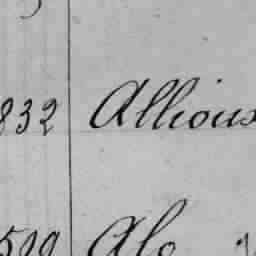 832 Allious
599 Alo